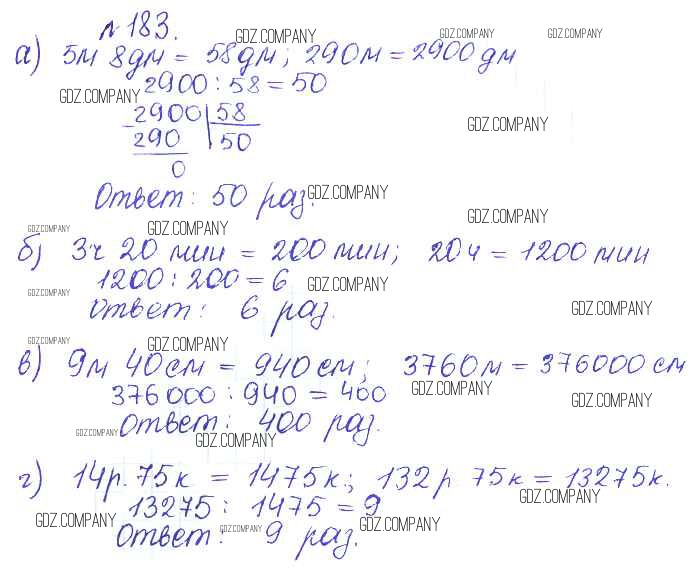 №183.
GDZ.COMPANY GDZ.COMPANY GDZ.COMPANY
а) 5м 8дм = 58дм; 290м = 2900 дм
2900 : 58 = 50
GDZ.COMPANY
2900 58
GDZ.COMPANY
290 50
0
Ответ: 50 раз.
GDZ.COMPANY
GDZ.COMPANY
GDZ.COMPANY GDZ.COMPANY
б) 3ч 20 мин = 200 мин; 20ч = 1200 мин
1200 : 200 = 6
GDZ.COMPANY GDZ.COMPANY
Ответ: 6 раз.
GDZ.COMPANY
GDZ.COMPANY GDZ.COMPANY
в) 9м 40см = 940 см; 3760м = 376000 см
376 000 : 940 = 400
GDZ.COMPANY
GDZ.COMPANY
Ответ: 400 раз.
GDZ.COMPANY
GDZ.COMPANY
г) 14р. 75к = 1475к.; 132р 75к = 13275к.
GDZ.COMPANY
13275 : 1475 = 9
GDZ.COMPANY GDZ.COMPANY GDZ.COMPANY
Ответ: 9 раз.